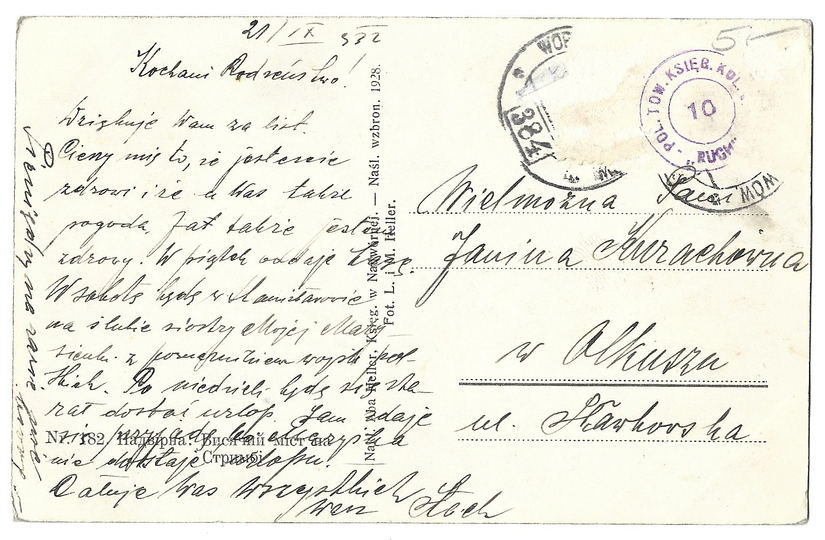 21/IX 932
Kochani Rodzeństwo!
Dziękuję Wam za list.
Cieszy mię to, że jesteście
zdrowi i że u Was także
pogoda. Ja też także jestem
zdrowy. W piątek oddaję
W sobotę będę w Stanisławowie
na ślubie siostry Mojej
z porucznikiem wojsk pol-
skich. Po niedzieli będę się sta-
rał dostać urlop.
nie dostaję urlopu.
Całuję Was wszystkich
Wasz Stach
Nr 182. Надвірна. Висячий міст на
Стримбі
Nakł. Aba Heller, Księg. w Nadwórnej. — Naśl. wzbron. 1928.
Fot. L. i M. Heller.
384
POL. TOW. KSIĘG. KOL.
10
"RUCH"
5—
Wielmożna Pani
Janina Kurachówna
w Olkuszu
ul. Sławkowska